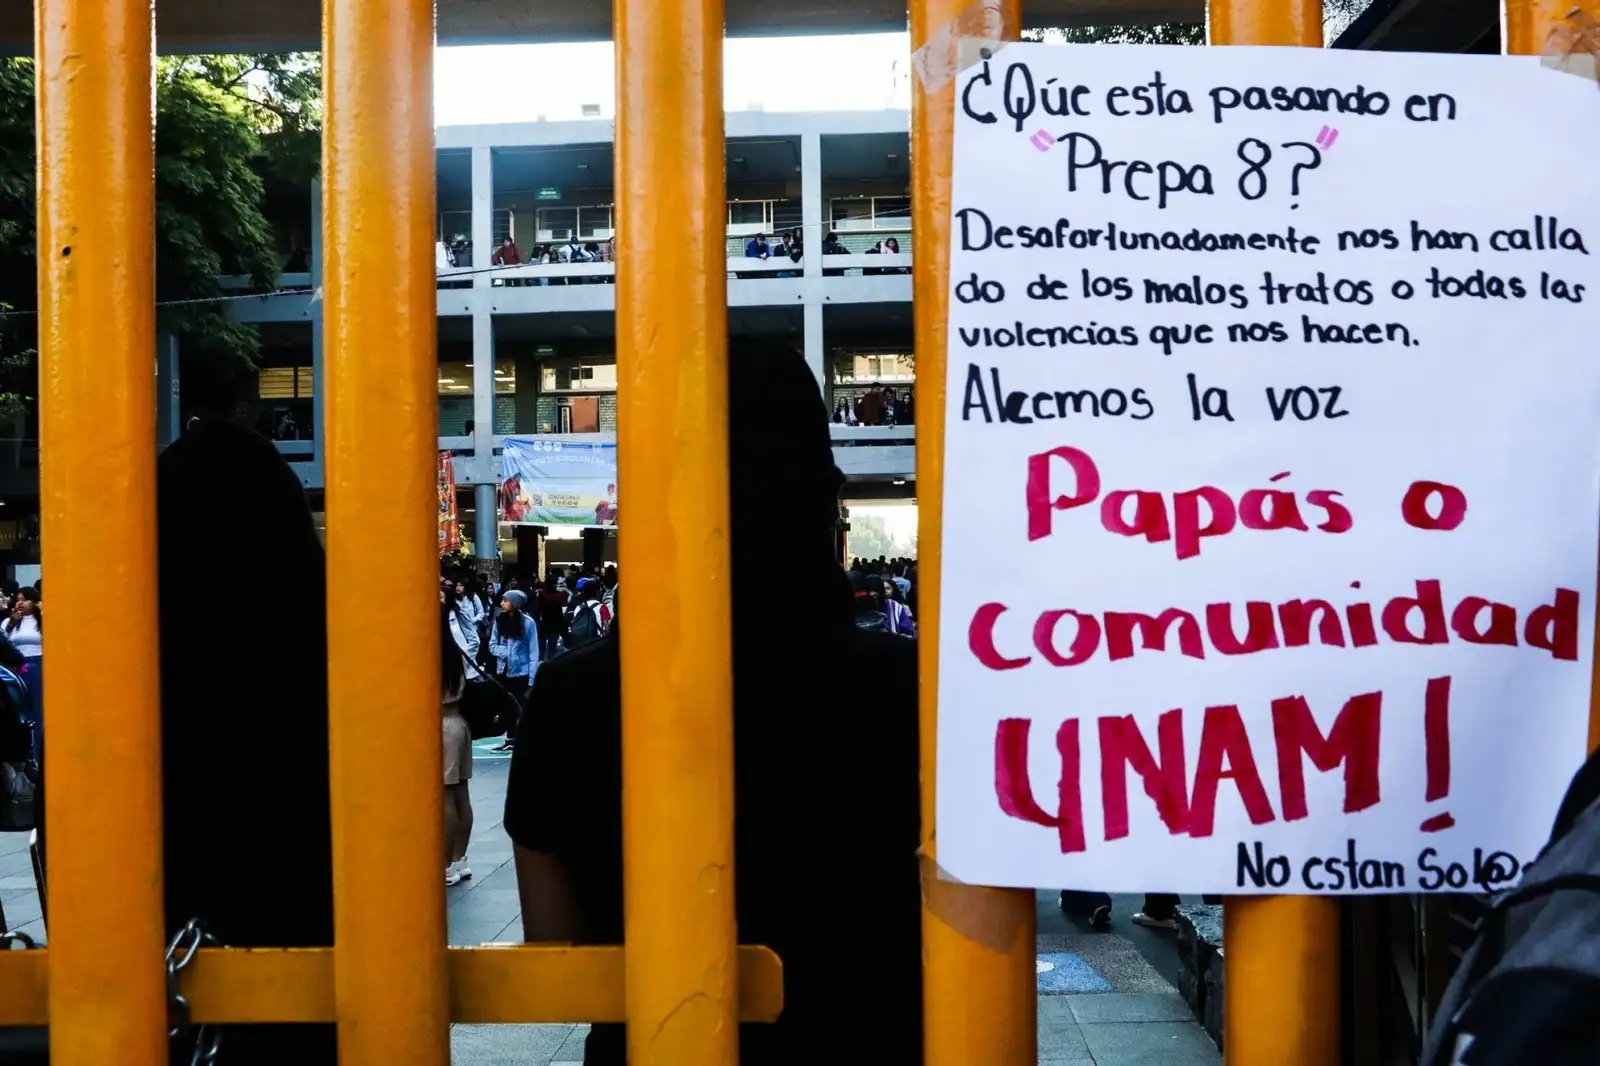 ¿Qúe esta pasando en
"Prepa 8?"
Desafortunadamente nos han calla
do de los malos tratos o todas las
violencias que nos hacen.
Alcemos la voz
Papás o
comunidad
UNAM!
No estan Sol@s